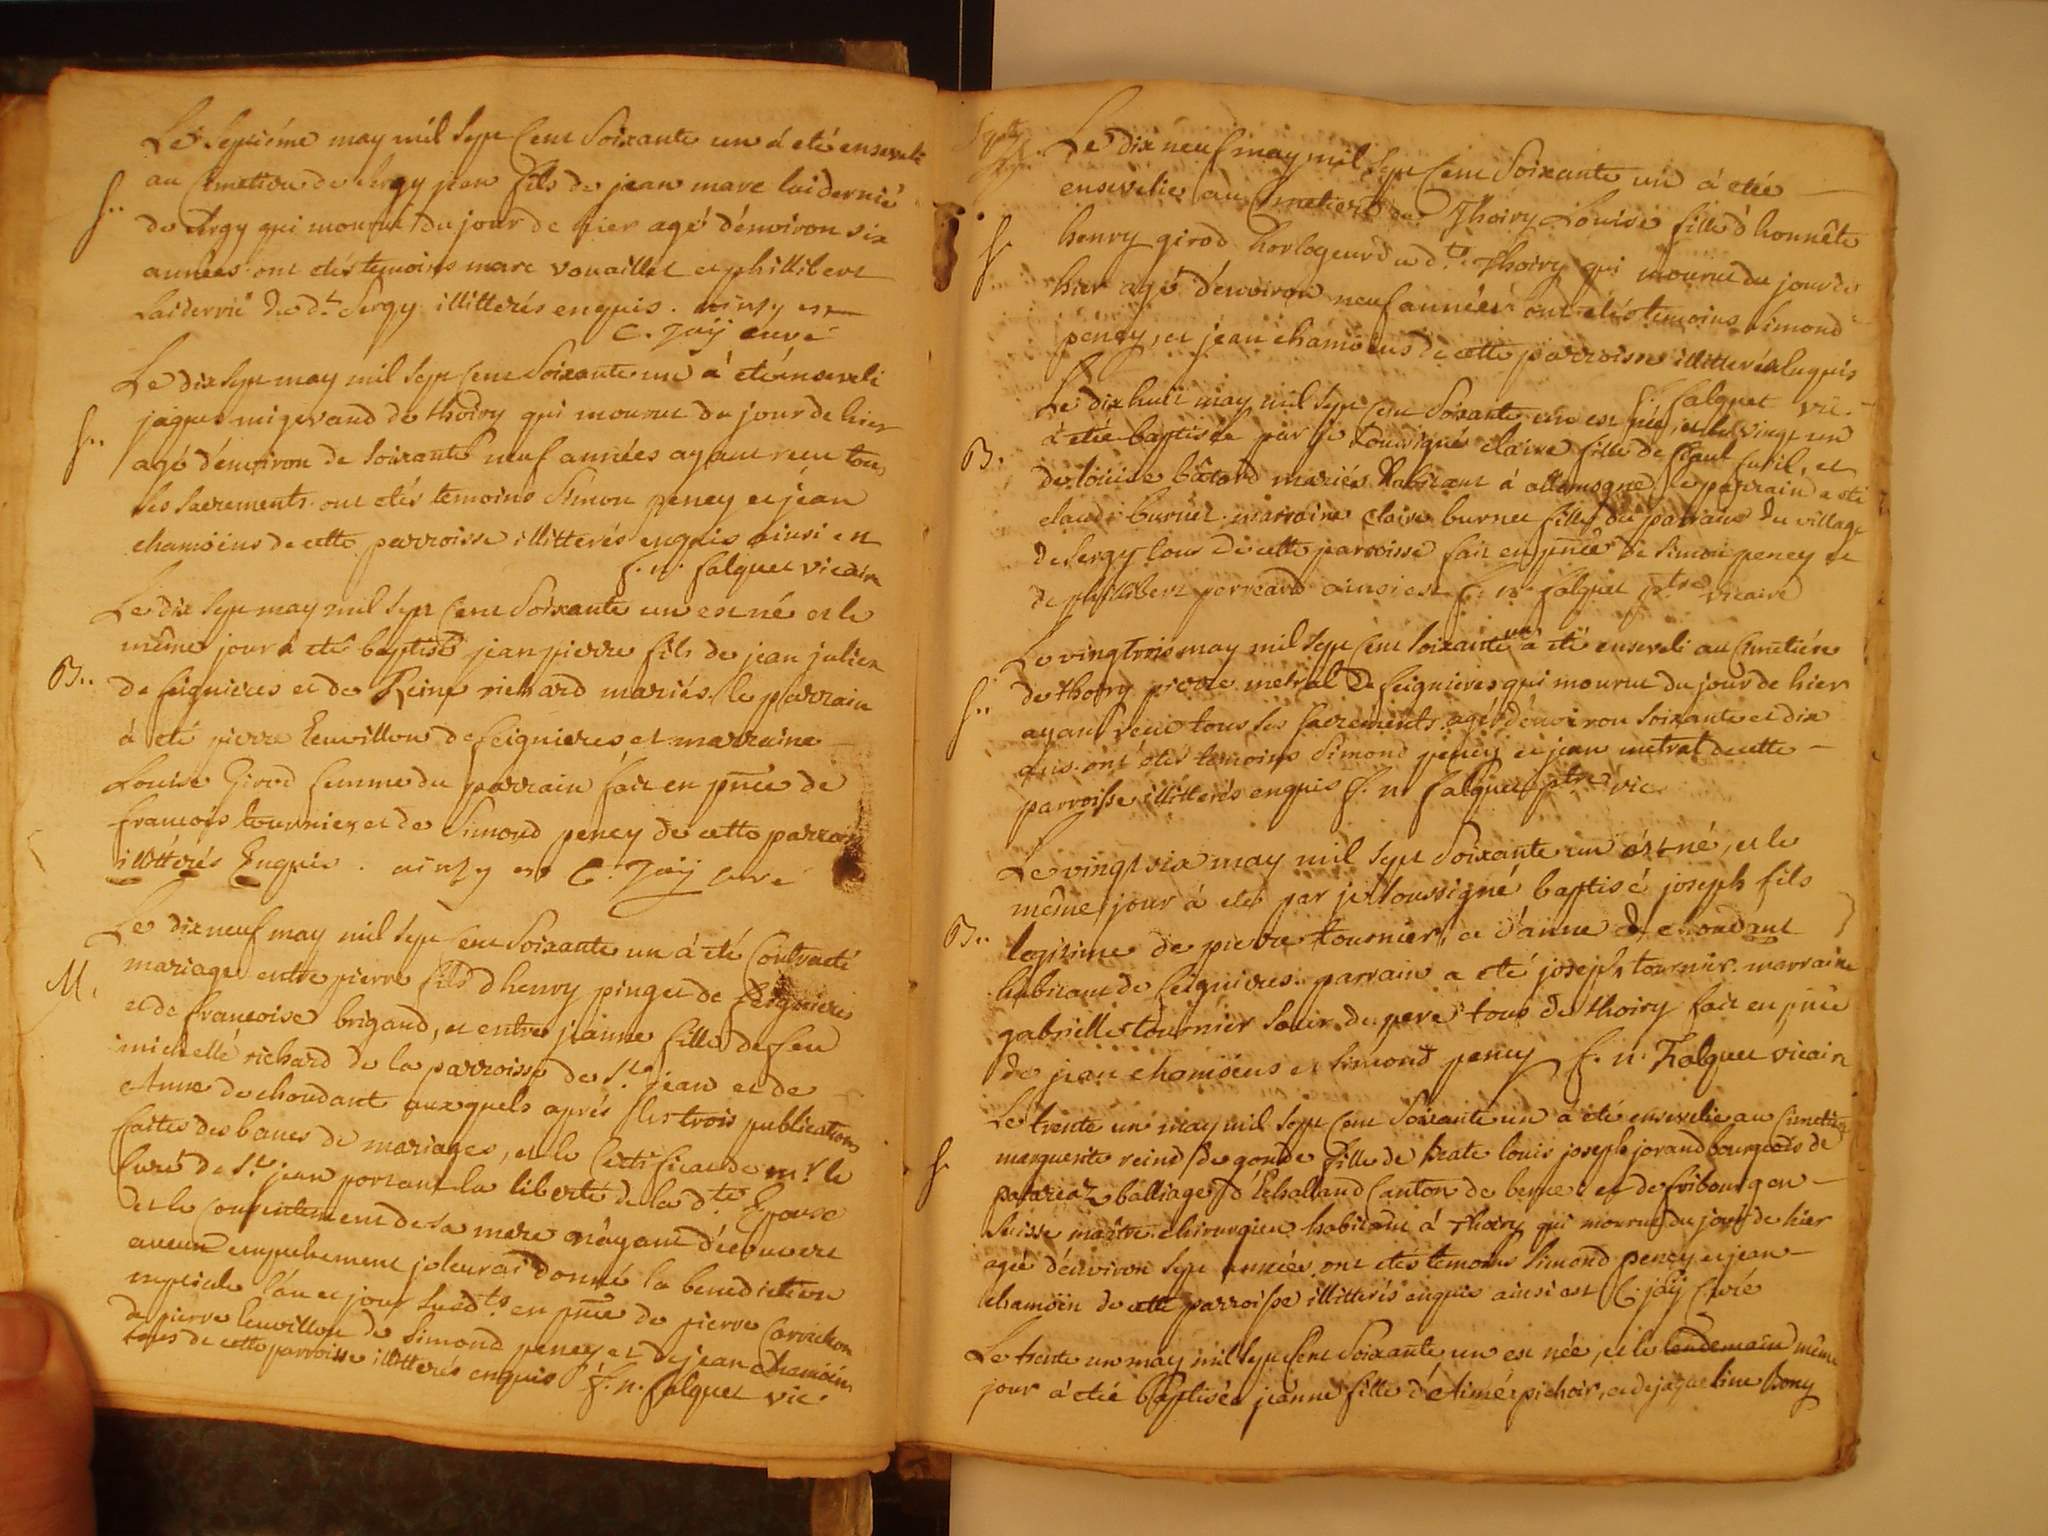 Le Septiéme may mil Sept Cent Soixante un á eté enseveli
au Cimetiere de Sergy jean fils de jean marc laidernié
S..
de Sergy qui mourut du jour de hier agé d'environ six
années. ont etés temoins marc vouaillet et phillibert
Laidernié du dt. Sergy illitterés enquis. ainsy est
C. Jaÿ curé
Le dix Sept may mil Sept Cent Soixante un á eté enseveli
jaques migerand de thoiry qui mourut du jour de hier
S..
agé d'environ de Soixante neuf années ayant recu tous
les Sacrements. ont etés temoins Simon peney et jean
chamoins de cette parroisse illitterés enquis ainsi est
f. n. falquet vicaire
Le dix Sept may mil Sept Cent Soixante un est né et le
même jour á eté baptisé jean pierre fils de jean julien
B..
de feignieres et de Reine richard mariés. le parrain
á eté pierre Euvillon de feignieres et marraine
Louise Girod femme du parrain fait en pñce de
francois tournier, et de Simond peney de cette parrois
illitterés Enquis. ainsy est C. Jaÿ curé
Le dix neuf may mil Sept Cent Soixante un á eté Contracté
M.
mariage entre pierre fils d'henry pinget de feignieres
et de francoise brigand, et entre jeanne fille de feu
michelle richard de la parroisse de St. jean et de
Anne de choudant auxquels aprés les trois publications
faites des bancs de mariages, et le Certificat de mr. le
Curé de St. jean portant la liberté de la dte. Epouse
et le Consentement de sa mere n'ayant découvert
aucun empechement je leurai donné la benediction
nuptiale l'an et jour Susdts en pñce de pierre Carrichon
de pierre Euvillon de Simond peney et de jean chamoin
tous de cette parroisse illitterés enquis f. n. falquet vic.
Le dix neuf may mil Sept Cent Soixante un á etée
ensevelie au Cimetiere de Thoiry Louise fille d'honnête
S.
henry girod horlogeur du dt. Thoiry qui mourut du jour de
hier agé d'environ neuf années ont etés temoins Simond
peney, et jean chamoins de cette parroisse illitterés Enquis
f. falquet vic.
Le dix huit may mil Sept Cent Soixante un est née, et le vingt un
á etée baptisée par je Soussigné claire fille de Claul Curil, et
B.
de loüise bâtard mariés habitant á allemogne, le parrain a eté
claude burnet. marraine claire burnet fille du parrain du village
de Sergy tous de cette parroisse fait en pñce de Simon peney et
de phillibert perreard ainsi est f. n. falquet ptre vicaire
Le vingtrois may mil Sept Cent Soixante un á eté enseveli au Cimetiére
de thoiry pierre metral de feignieres qui mourut du jour de hier
S..
ayant recu tous les Sacrements. agé d'environ Soixante et dix
ans. ont etés temoins Simond peney et jean metral de cette
parroisse illitterés enquis f. n. falquet ptre vic.
Le vingt six may mil Sept Soixante un est né, et le
même jour á eté par je Soussigné baptisé joseph fils
B..
legitime de pierre tournier, et d'anne de choudant
habitant de feignieres. parrain a eté joseph tournier. marraine
gabrielle tournier Sœur de pere tous de thoiry fait en pñce
de jean chamoins et Simond peney f. n. Falquet vicaire
Le trente un may mil Sept Cent Soixante un á eté ensevelie au Cimetiere
S.
marguerite reind de gonde fille de beate louis joseph jorand bourgeois de
balliage d'Echalland Canton de berne et de fribourg en
Suisse maitre chirurgien habitant á Thoiry qui mourut du jour de hier
agée d'environ Sept années. ont etés temoins Simond peney et jean
chamoin de cette parroisse illitterés enquis ainsi est C. jaÿ Curé
Le trente un may mil Sept Cent Soixante un est née, et le lendemain même
jour á etée Baptisée jeanne fille d'Aimé pichoir, et de jaqueline Bony